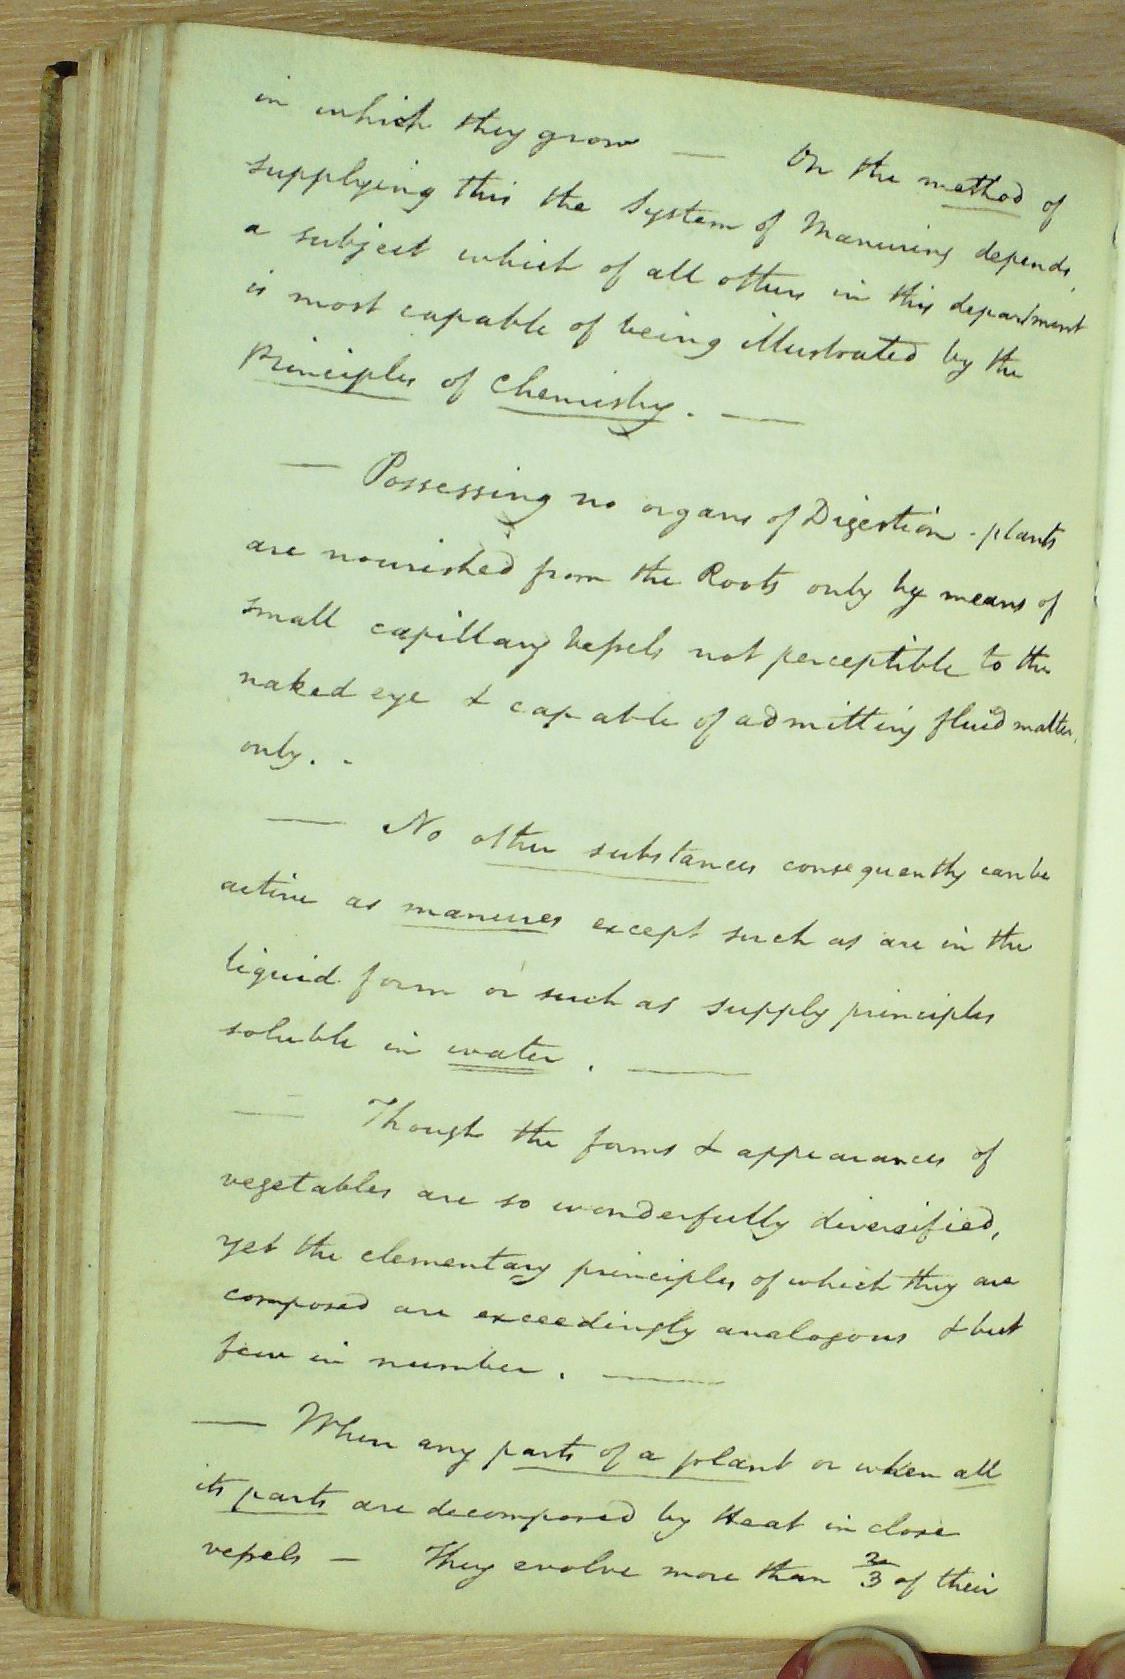 in which they grow — On the method of
supplying this the System of Manuring depends,
a subject which of all others in this department
is most capable of being illustrated by the
Principles of Chemistry. —
— Possessing no organs of Digestion - plants
are nourished from the Roots only by means of
small capillary vessels not perceptible to the
naked eye & capable of admitting fluid matter,
only. -
— No other substances consequently can be
active as manures except such as are in the
liquid form or such as supply principles
soluble in water. —
— Though the forms & appearances of
vegetables are so wonderfully diversified,
yet the elementary principles of which they are
composed are exceedingly analogous & but
few in number. —
— When any parts of a plant or when all
its parts are decomposed by Heat in close
vessels — They evolve more than 2/3 of their